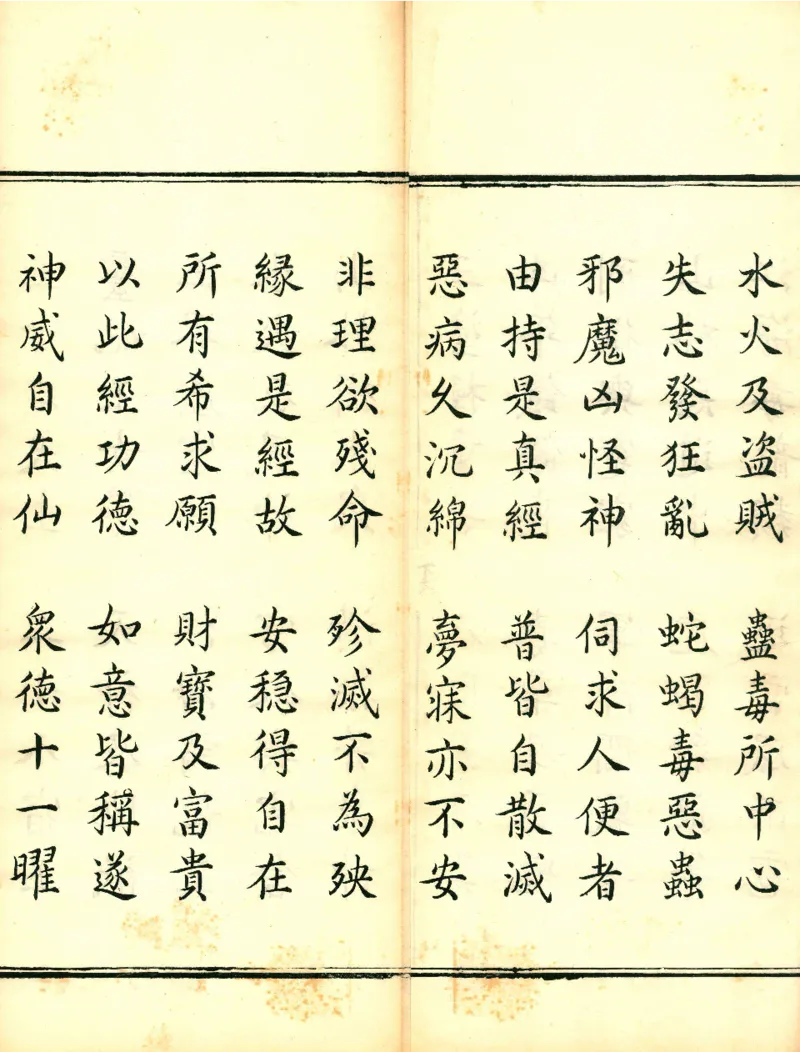 水火及盗賊 蠱毒所中心
失志發狂亂 蛇蝎毒惡蟲
邪魔凶怪神 伺求人便者
由持是真經 普皆自散滅
惡病久沉綿 夢寐亦不安
非理欲殘命 殄滅不為殃
緣遇是經故 安穩得自在
所有希求願 財寶及富貴
以此經功德 如意皆稱遂
神威自在仙 眾德十一曜